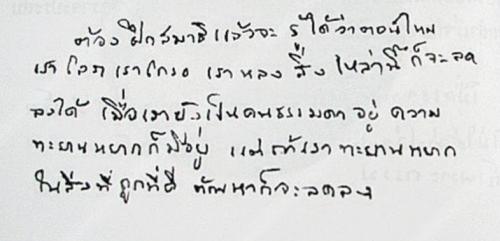 ต้องฝึกสมาธิแล้วจะ รู้ได้ว่าตอนไหน
เราโลภ เราโกรธ เราหลง สิ่งเหล่านี้ก็จะลด
ลงได้ เมื่อเรายังเป็นคนธรรมดาอยู่ ความ
ทะยานหยากก็มีอยู่ แต่ถ้าเราทะยานหยาก
ในสิ่งที่ถูกที่ดี ตัณหาก็จะลดลง